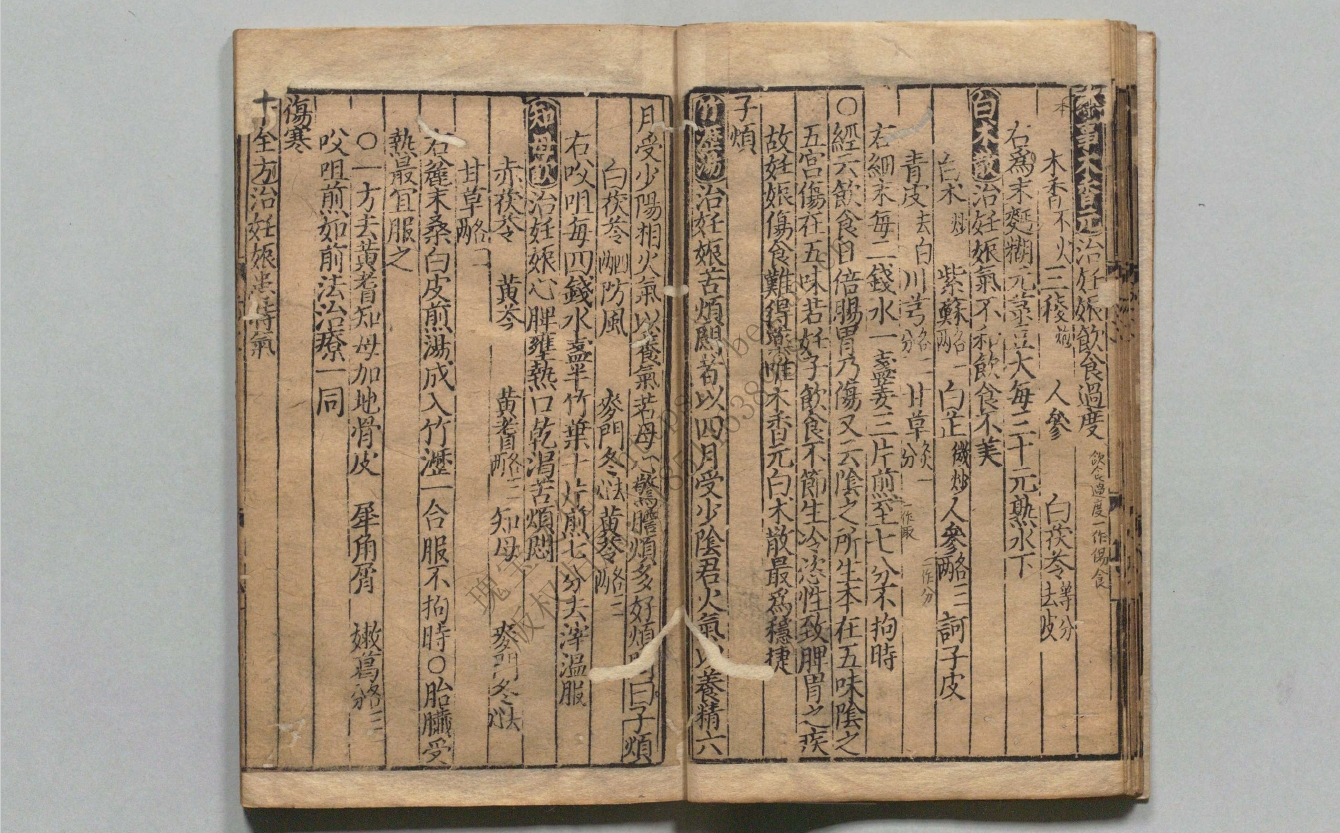 事木香元治妊娠飲食過度 飲食過度一作傷食
木香不火三稜炮 人參 白茯苓等分去皮
右為末麪糊元菉豆大每三十元熟水下
白术散治妊娠氣不和飲食不美
白术炒 紫蘇各一兩 白芷微炒人參各三 訶子皮
青皮去白川芎各一分 甘草炙一分 一作
右細末每二錢水一盞姜三片煎至七八分不拘時
〇經云飲食自倍腸胃乃傷又云陰之所生本在五味陰之
五宮傷在五味若妊子飲食不節生冷恣性致脾胃之疾
故妊娠傷食難得藥唯木香元白术散最為穩捷
子煩
竹瀝湯治妊娠苦煩悶者以四月受少陰君火氣以養精六
月受少陽相火氣以養氣若母心驚膽煩多好煩悶曰子煩
白茯苓四防風 麥門冬 黄芩
右㕮咀每四錢水盞半竹葉十片煎七分去滓温服
知母飲治妊娠心脾壅熱口乾渴苦煩悶
赤茯苓 黄芩 黄耆各三 知母 麥門冬
甘草各二
右麄末桑白皮煎湯成入竹瀝一合服不拘時〇胎臟受
熱最宜服之
〇一方去黄耆知母加地骨皮 犀角屑 嫩葛
㕮咀煎如前法治療一同
傷寒
十全方治妊娠患時氣